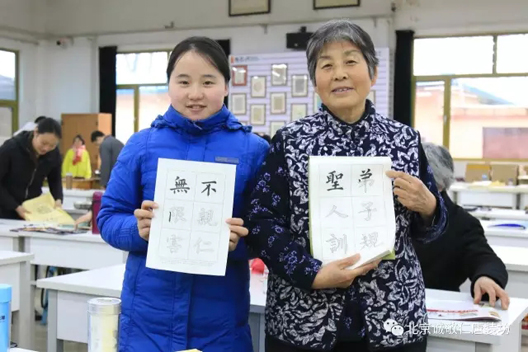 不親仁
無限害
弟子規
聖人訓
北京诚敬仁